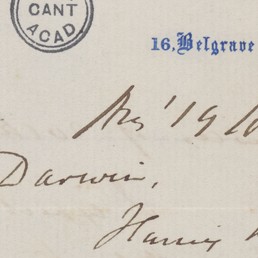 CANT
ACAD.
16, Belgrave
Darwin,
Having